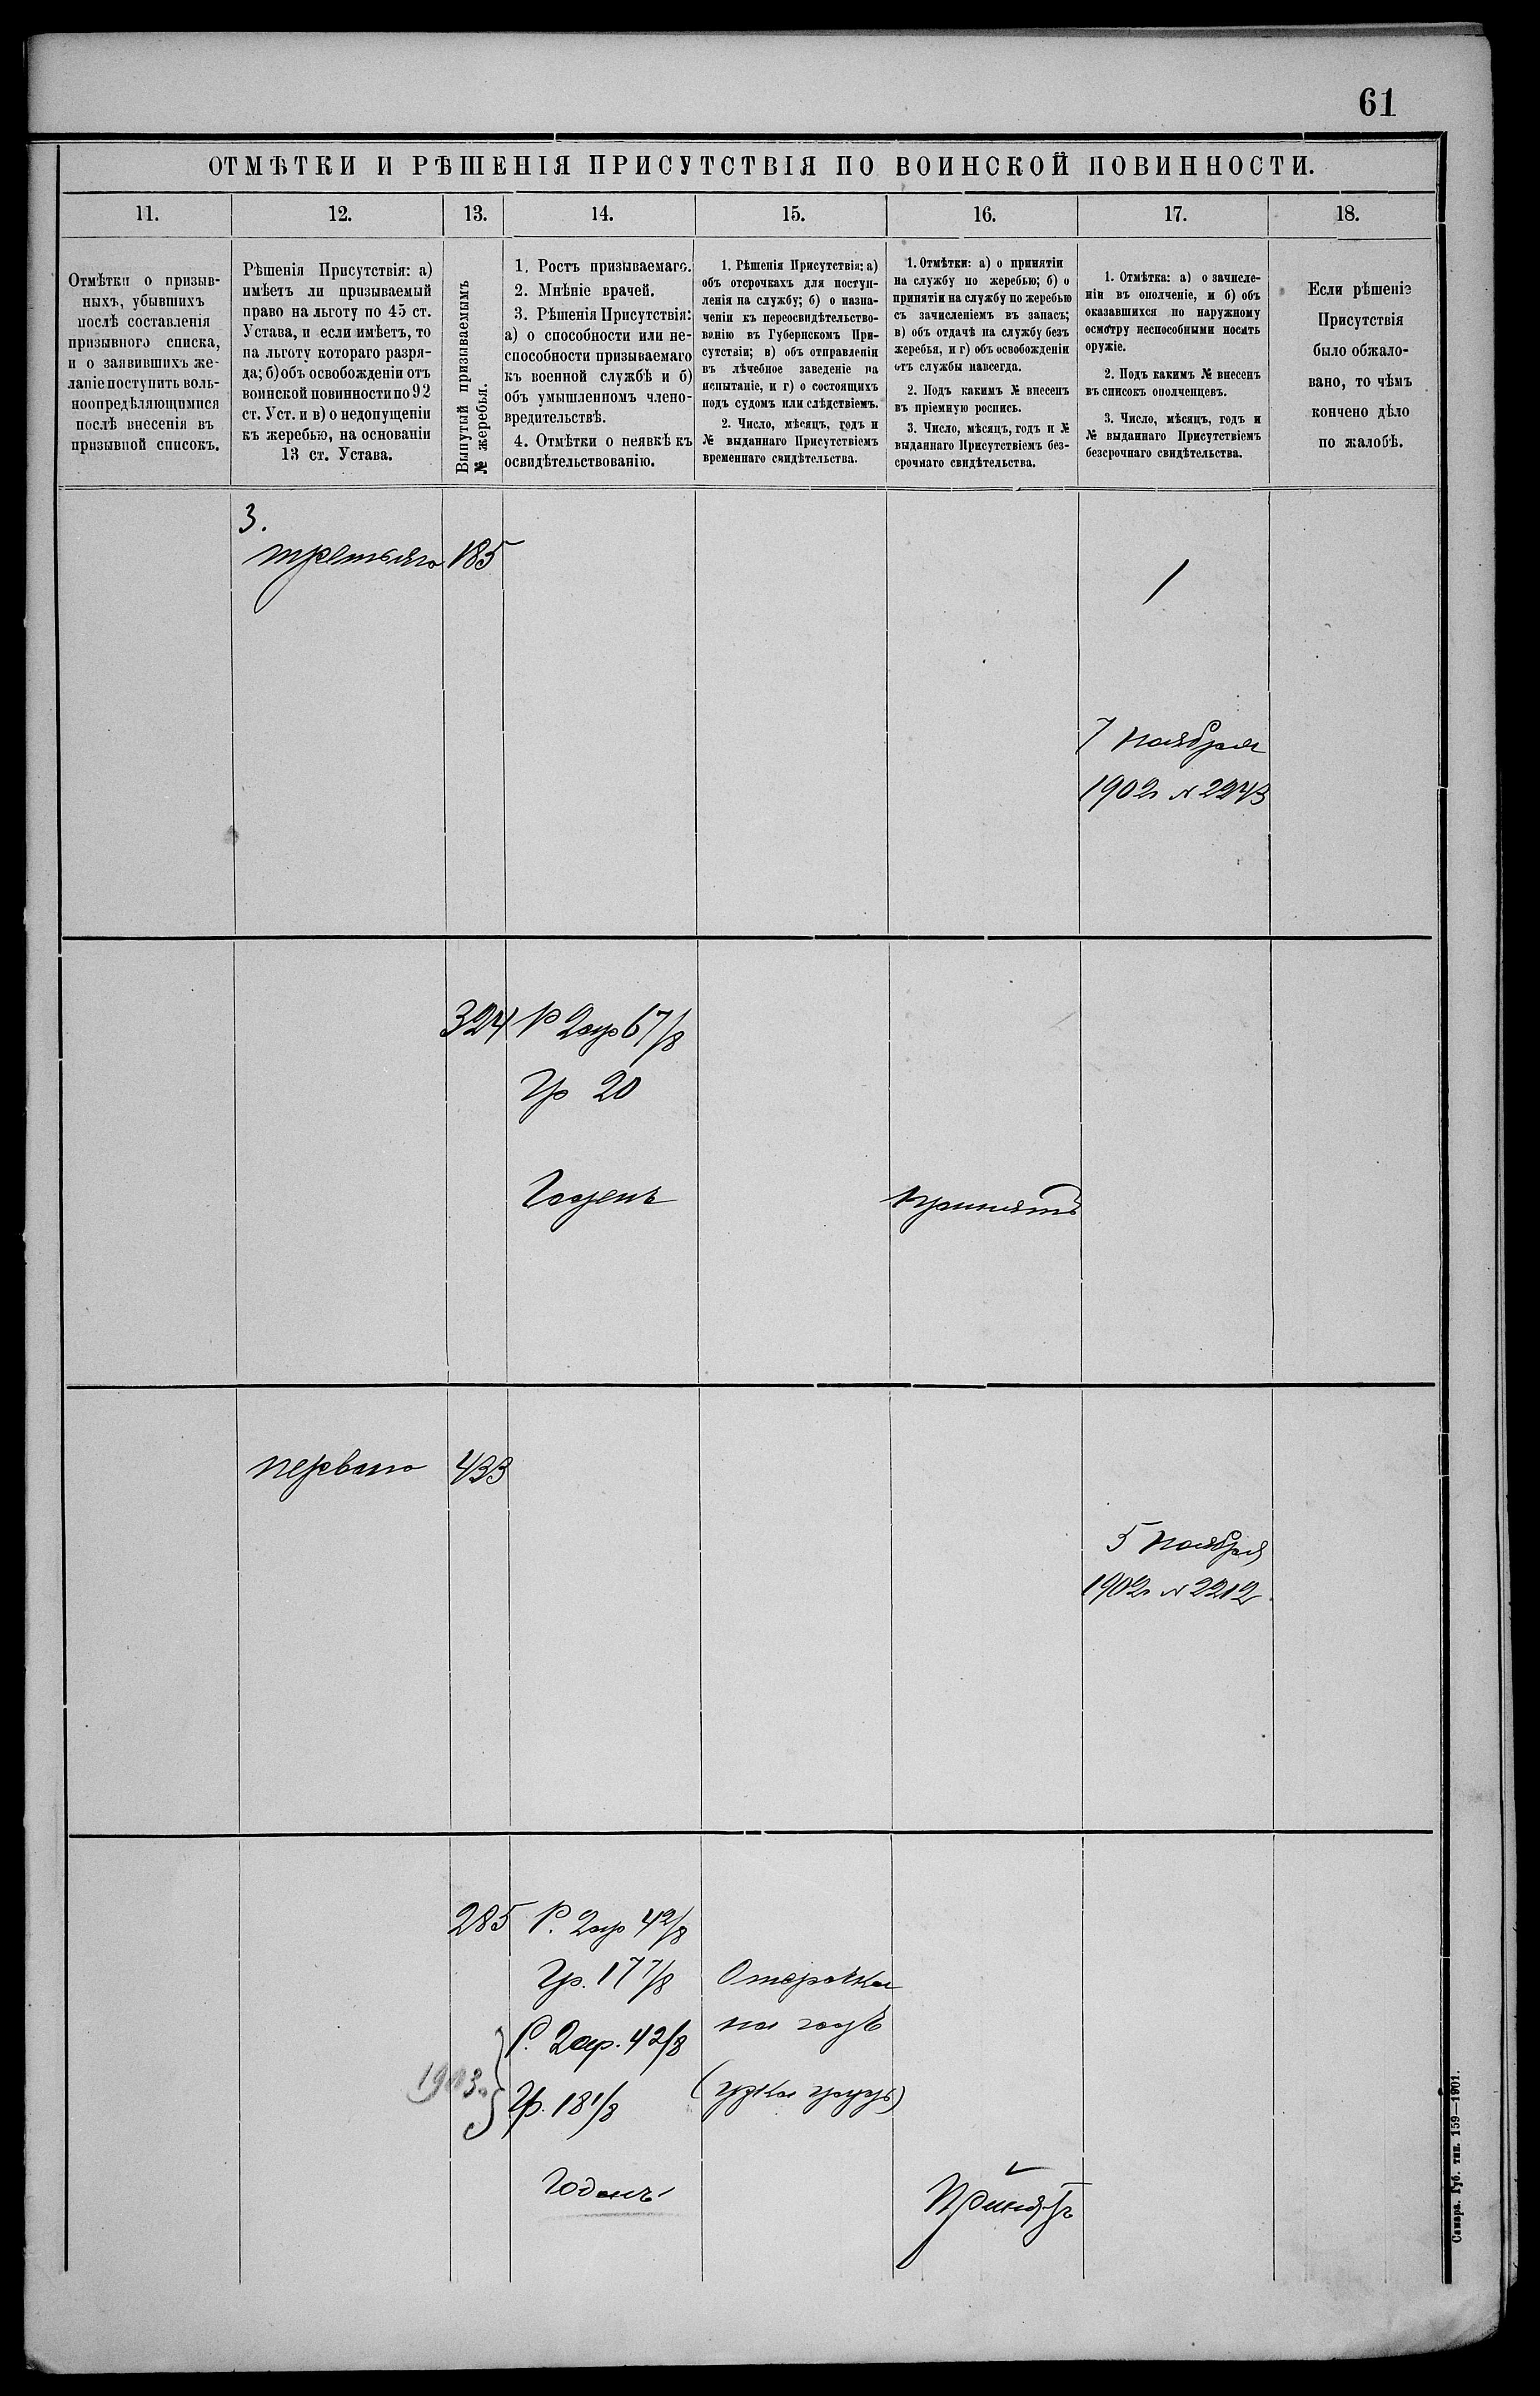 61
ОТМѢТКИ И РѢШЕНІЯ ПРИСУТСТВІЯ ПО ВОИНСКОЙ ПОВИННОСТИ.
11.
12.
13.
14.
15.
16.
17.
18.
Отмѣтки о призыв-
ныхъ, убывшихъ
послѣ составленія
призывного списка,
и о заявившихъ же-
ланіе поступить воль-
ноопредѣляющимися
послѣ внесенія въ
призывной списокъ.
Рѣшенія Присутствія: а)
имѣетъ ли призываемый
право на льготу по 45 ст.
Устава, и если имѣетъ, то
на льготу котораго разря-
да; б) объ освобожденіи отъ
воинской повинности по 92
ст. Уст. и в) о недопущеніи
къ жеребью, на основаніи
13 ст. Устава.
Вынутый призываемымъ
№ жеребья.
1. Ростъ призываемаго.
2. Мнѣніе врачей.
3. Рѣшенія Присутствія:
а) о способности или не-
способности призываемаго
къ военной службѣ и б)
объ умышленномъ члено-
вредительствѣ.
4. Отмѣтки о неявкѣ къ
освидѣтельствованію.
1. Рѣшенія Присутствія: а)
объ отсрочкахъ для поступ-
ленія на службу; б) о назна-
ченіи къ переосвидѣтельство-
ванію въ Губернскомъ При-
сутствіи; в) объ отправленіи
въ лѣчебное заведеніе на
испытаніе, и г) о состоящихъ
подъ судомъ или слѣдствіемъ.
2. Число, мѣсяцъ, годъ и
№ выданнаго Присутствіемъ
временнаго свидѣтельства.
1. Отмѣтки: а) о принятіи
на службу по жеребью; б) о
принятіи на службу по жеребью
съ зачисленіемъ въ запасъ;
в) объ отдачѣ на службу безъ
жеребья, и г) объ освобожденіи
отъ службы навсегда.
2. Подъ какимъ № внесенъ
въ пріемную роспись.
3. Число, мѣсяцъ, годъ и №
выданнаго Присутствіемъ без-
срочнаго свидѣтельства.
1. Отмѣтка: а) о зачисле-
ніи въ ополченіе, и б) объ
оказавшихся по наружному
осмотру неспособными носить
оружіе.
2. Подъ какимъ № внесенъ
въ списокъ ополченцевъ.
3. Число, мѣсяцъ, годъ и
№ выданнаго Присутствіемъ
безсрочнаго свидѣтельства.
Если рѣшеніе
Присутствія
было обжало-
вано, то чѣмъ
кончено дѣло
по жалобѣ.
3.
третьяго 185
7 Ноября
1902 № 2243
324 Р 2ар 6 7/8
Гр 20
Годенъ
Принятъ
перваго 433
5 Ноября
1902 № 2212
285 Р. 2ар 4 2/8
Гр. 17 7/8
Отсрочка
Р. 2ар. 4 2/8
на годъ
1903
Гр. 18 1/8
(узка грудь)
Годенъ
Принятъ
Самара. Губ. тип. 159—1901.